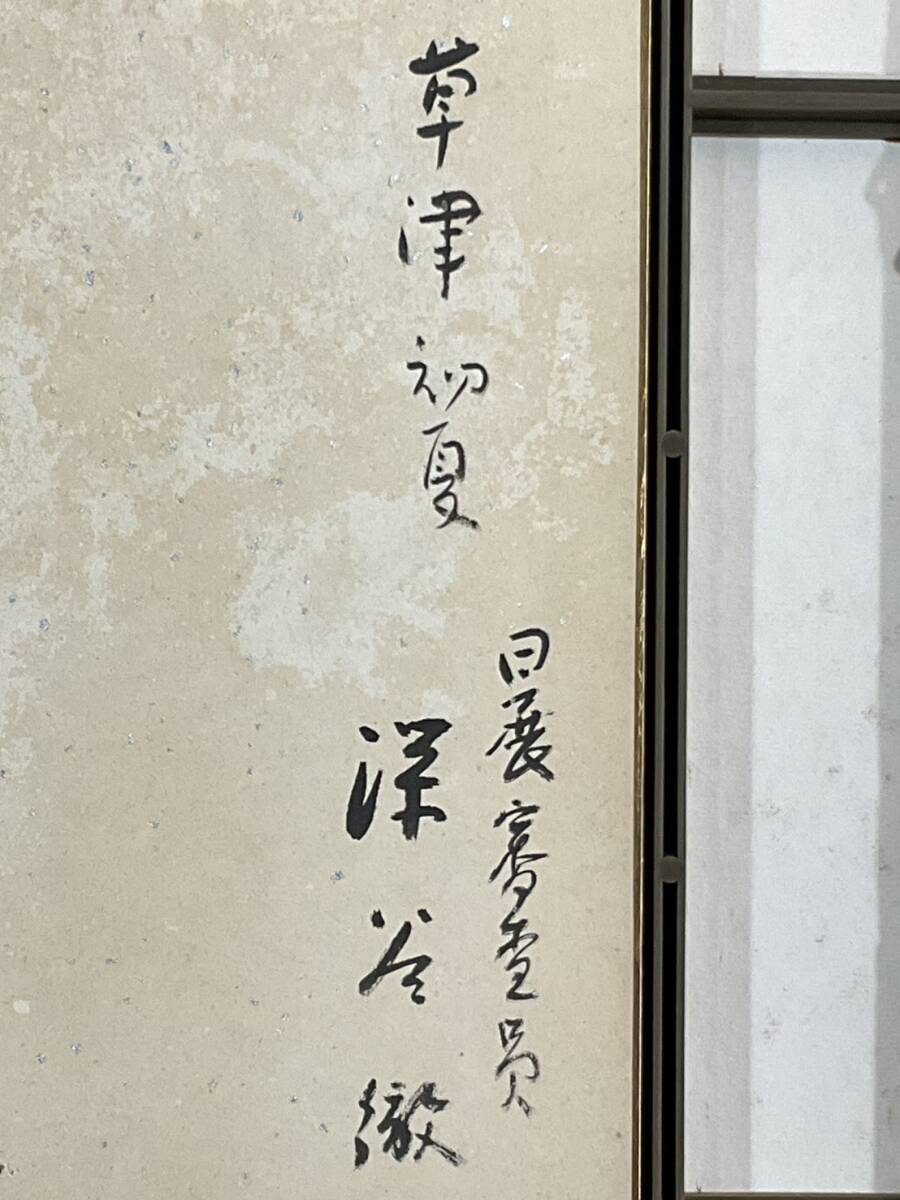 草津初夏
日展審査員
深谷徹